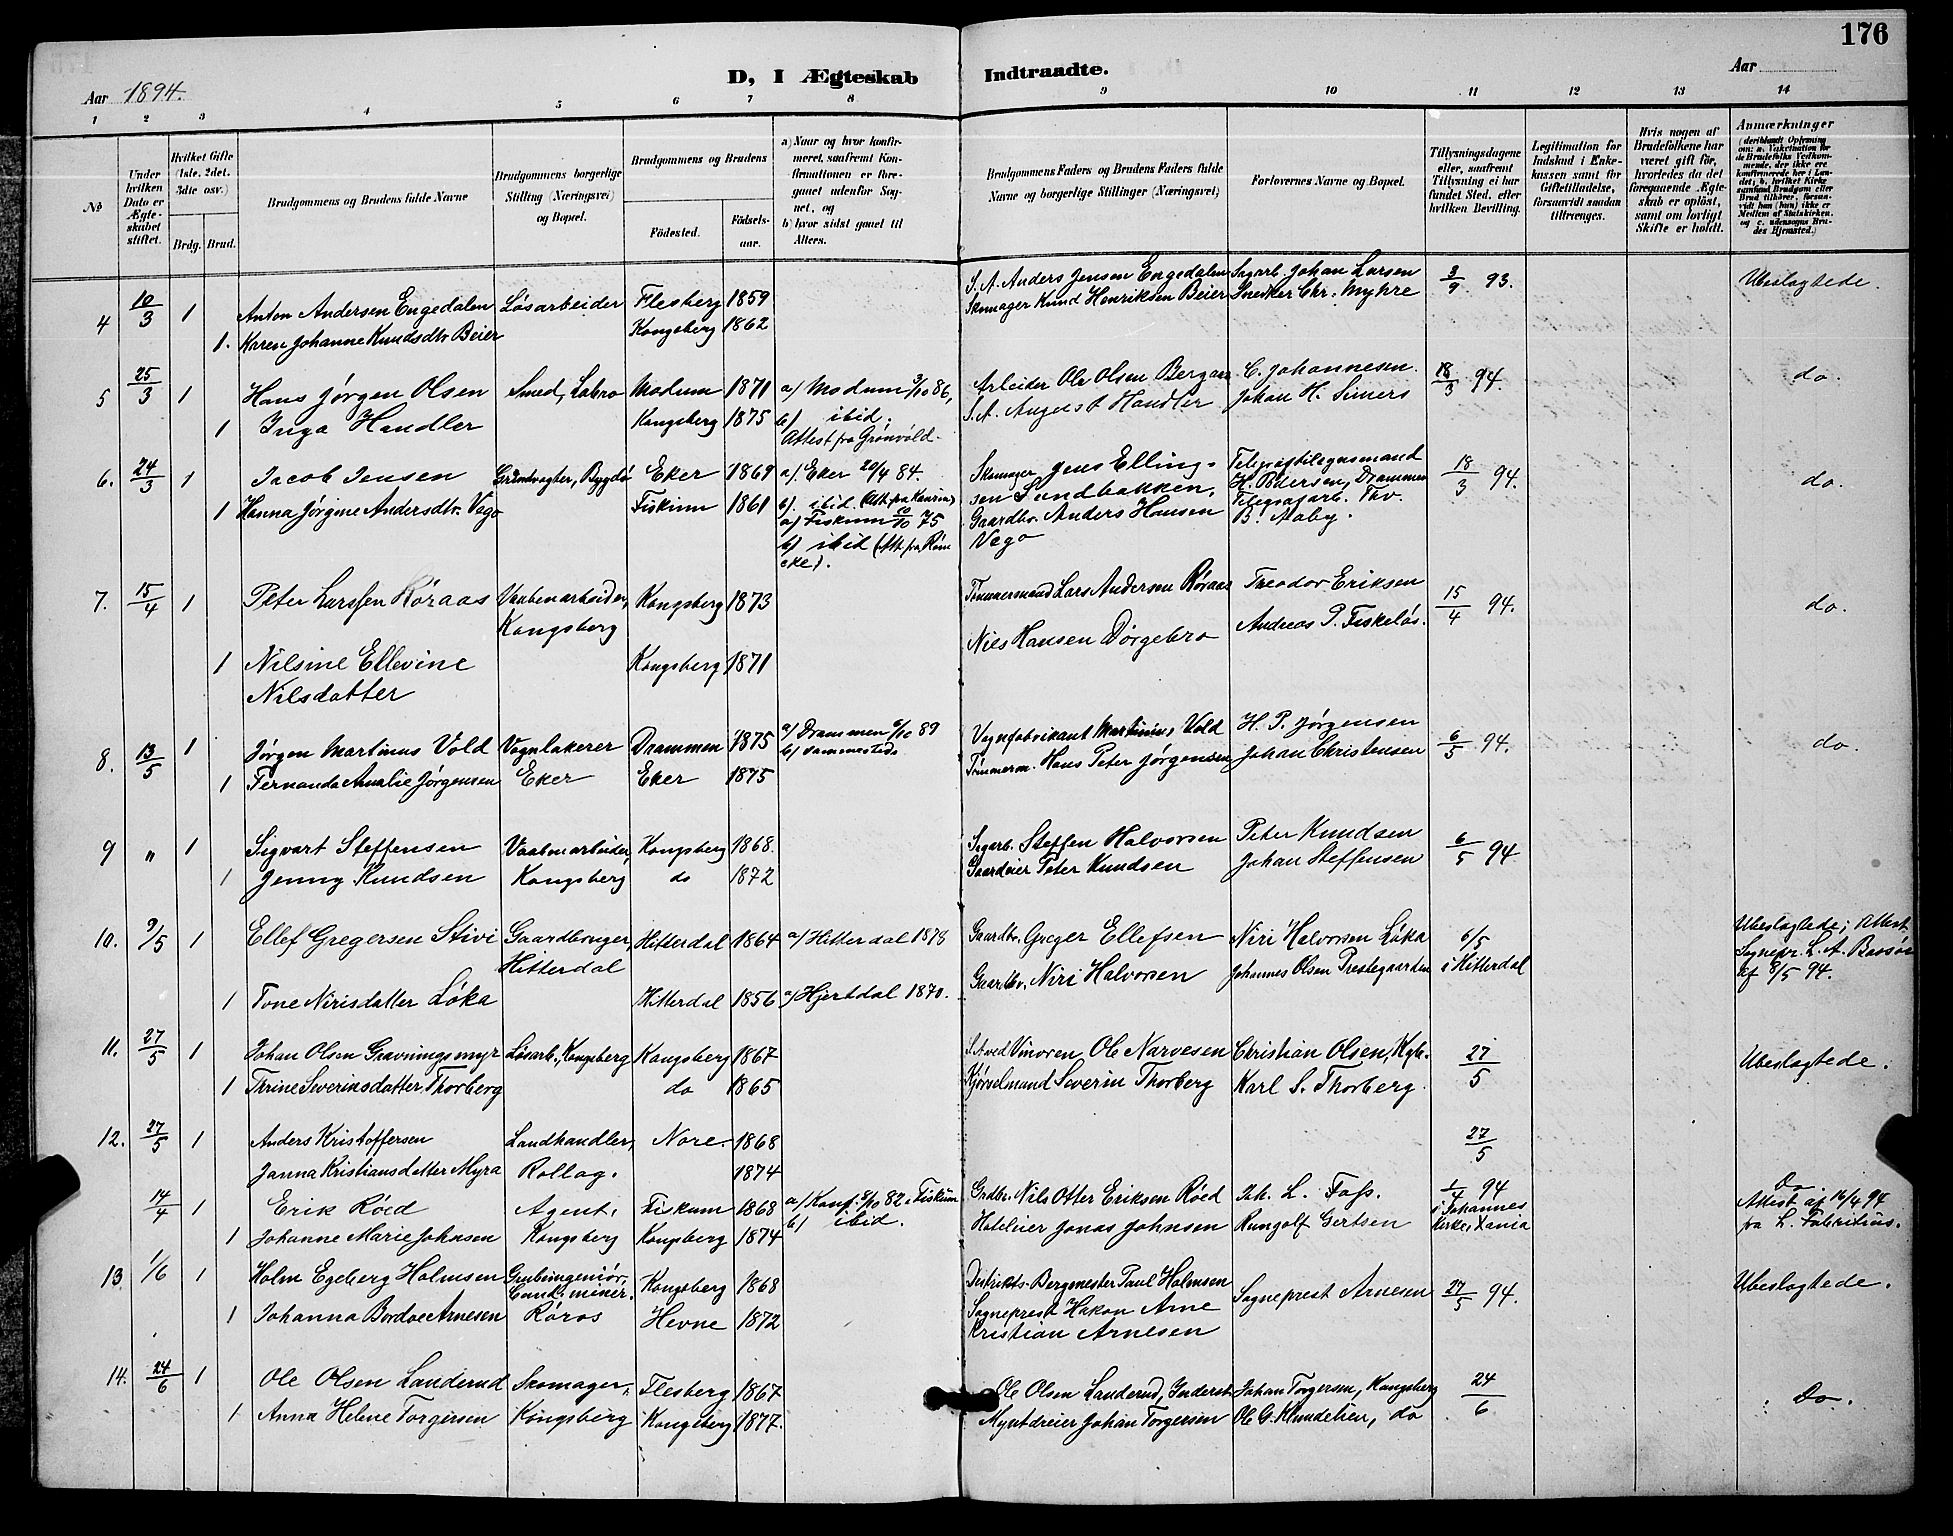 176
D, I Ægteskab Indtraadte.
Aar 1894. Aar
1 2 3 4 5 6 7 8 9 10 11 12 13 14
No
Under hvilken Dato er Ægteskabet stiftet.
Hvilket Gifte (1ste, 2det, 3die osv.)
Brdg. Brud.
Brudgommens og Brudens fulde Navne
Brudgommens borgerlige Stilling (Næringsvei) og Bopæl.
Brudgommens og Brudens
Fødested. Fødselsaar.
a) Naar og hvor konfirmeret, saafremt Konfirmationen er foregaaet udenfor Sognet, og
b) hvor sidst gaaet til Alters.
Brudgommens Faders og Brudens Faders fulde Navne og borgerlige Stillinger (Næringsvei)
Forlovernes Navne og Bopæl.
Tillysningsdagene eller, saafremt Tillysning ei har fundet Sted, efter hvilken Bevilling.
Legitimation for Indskud i Enkekassen samt for Giftetilladelse, forsaavidt saadan tiltrænges.
Hvis nogen af Brudefolkene har været gift før, hvorledes da det foregaaende Ægteskab er opløst, samt om lovligt Skifte er holdt.
Anmærkninger (deriblandt Oplysning om: a. Vakcination for de Brudefolks Vedkommende, der ikke ere konfirmerede her i Landet; b. hvilket Kirkesamfund Brudgom eller Brud tilhører, forsaavidt han (hun) ikke er Medlem af Statskirken, og c. udensogns Brudes Hjemsted.)
4 10/3 1 Anton Andersen Engedalen Løsarbeider Flesberg 1859 S. A. Anders Jensen Engedalen Sagarb. Johan Larsen 3/9 93. Ubeslægtede.
1. Karen Johanne Knudsdtr. Beier Kongsberg 1862 Skomager Knud Henriksen Beier Snedker Chr. Myhre
5 25/3 1 Hans Jørgen Olsen Smed, Labro Modum 1871 a) Modum 3/10 86, Arbeider Ole Olsen Bergan C. Johannesen. 18/3 94. do.
1 Inga Handler Kongsberg 1875 b) ibid. S. A. August Handler Johan H. Simers
Attest fra Grønvold.
6. 24/3 1 Jacob Jensen Grindvogter, Bygdø Eker 1869 a) Eker 20/4 84. Skomager Jens Ellingsen Sandbakken, Telegraftilsynsmand H. Pedersen, Drammen 18/3 94. do.
1 Hanna Jørgine Andersdtr. Vego Fiskum 1861 b). ibid.
a) Fiskum 10/10 75 Gaardbr. Anders Hansen Vego Telegrafarb. Thv. B. Aaby.
b) ibid
7. 15/4 1 Peter Larssen Röraas Vaabenarbeider, Kongsberg Kongsberg 1873 Tømmermand Lars Andersen Röraas Theodor Eriksen 15/4 94. do.
1 Nilsine Ellevine Nilsdatter Kongsberg 1871 Niels Hansen Dörgebro Andreas P. Fiskeløs.
8. 13/5 1 Jørgen Martinus Vold Vognlakerer Drammen 1875 a) Drammen 6/10 89 Vognfabrikant Martinius Vold H. P. Jørgensen 6/5 94. do.
b) sammesteds
1 Fernanda Amalie Jørgensen Eker Eker 1875 Tømmerm. Hans Peter Jørgensen Johan Christensen
9 " 1 Sigvart Steffensen Vaabenarbeider, Kongsberg 1868. Sagarb. Steffen Halvorsen Peter Knudsen 6/5 94.
1 Jenny Knudsen Kongsberg do 1872 Gaardeier Peter Knudsen Johan Steffensen
10. 9/5 1 Ellef Gregersen Stivi Gaardbruger, Hitterdal Hitterdal 1864 a) Hitterdal 1878 Gaardbr. Greger Ellefsen Niri Halvorsen Løka 6/5 i Hitterdal Ubeslægtede; Attest Sognepr. L. A. Bassøe af 8/5 94.
1 Tone Nirisdatter Løka Hitterdal 1856 a) Hjertdal 1870. Gaardbr. Niri Halvorsen Johannes Olsen Prestegaarden
11. 27/5 1 Johan Olsen Gravningsmyr Løsarb., Kongsberg Kongsberg 1867 S. A ved Vinoren Ole Narvesen Christian Olsen, Kgb. 27/5 Ubeslægtede.
1 Thrine Severinsdatter Thorberg do 1865 Kjørselmand Severin Thorberg Karl S. Thorberg.
12. 27/5 1 Anders Kristoffersen Landhandler, Nore. 1868 27/5
Janna Kristiansdatter Myra Rollag. 1874
14/4 1 Erik Røed Agent, Fiskum 1868 a) Konf. 8/10 82 i Fiskum Grdbr. Nils Otter Eriksen Røed Joh. L. Foss. 1/4 94 i Johannes kirke, Xania Do Attest af 16/4 94 fra L. Fabritius.
b) ibid.
1 Johanne Marie Johnsen Kongsberg Kongsberg 1874 Hoteleier Jonas Johnsen Rungolf Gertsen
13. 1/6 1 Holm Egeberg Holmsen Grubeingeniør, Cand. miner. Kongsberg 1868 Distrikts-Bergmester Paul Holmsen Sogneprest Arnesen 27/5 94. Ubeslægtede.
1 Johanna Bordoe Arnesen Røros Hevne 1872 Sogneprest Hakon Arne Kristian Arnesen
14. 24/6 1 Ole Olsen Landerud Skomager, Flesberg 1867 Ole Olsen Landerud, Inderst Johan Torgersen, Kongsberg 24/6 Do.
1 Anna Helene Torgersen Kongsberg Kongsberg 1877. Myntdreier Johan Torgersen Ole G. Klundelien, do